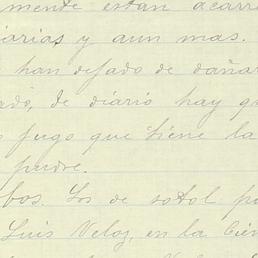 mente estan acarr
iarias y aun mas.
han dejado de dañar
ado, de diario hay q
jugo que tiene la
pudre.
bos. Los de sotol p
Luis Veloz, en la Cién